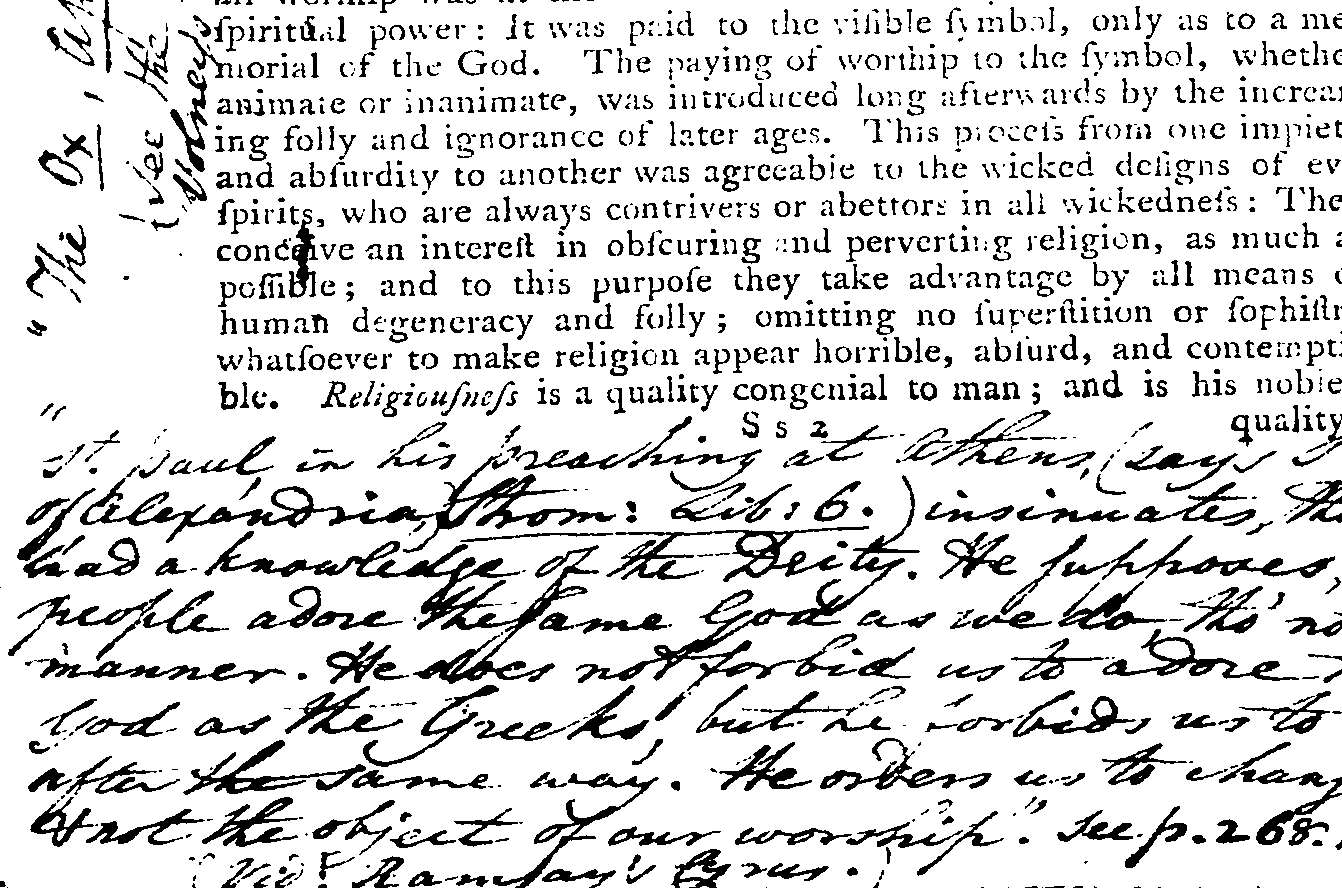 ſpiritual power: It was paid to the viſible ſymbol, only as to a me
morial of the God. The paying of worſhip to the ſymbol, whethe
animate or inanimate, was introduced long afterwards by the increaſ
ing folly and ignorance of later ages. This proceſs from one impiet
and abſurdity to another was agreeable to the wicked deſigns of ev
ſpirits, who are always contrivers or abettors in all wickedneſs: The
conceive an intereſt in obſcuring and perverting religion, as much a
poſſible; and to this purpoſe they take advantage by all means o
human degeneracy and folly; omitting no ſuperſtition or ſophiſtr
whatſoever to make religion appear horrible, abſurd, and contempti
ble. Religiouſneſs is a quality congenial to man; and is his noble
S s 2 quality
"The Ox,
(See the
Volney's
" St. Paul, in his preaching at Athens, (says
of Alexandria, Strom: Lib: 6.) insinuates, tha
had a knowledge of the Deity. He supposes,
people adore the same God as we do, tho' no
manner. He does not forbid us to adore
God as the Greeks, but he forbids us to
after the same way. He orders us to chang
& not the object of our worship". See p. 268.
(Vid: Ramsay's Cyrus.)